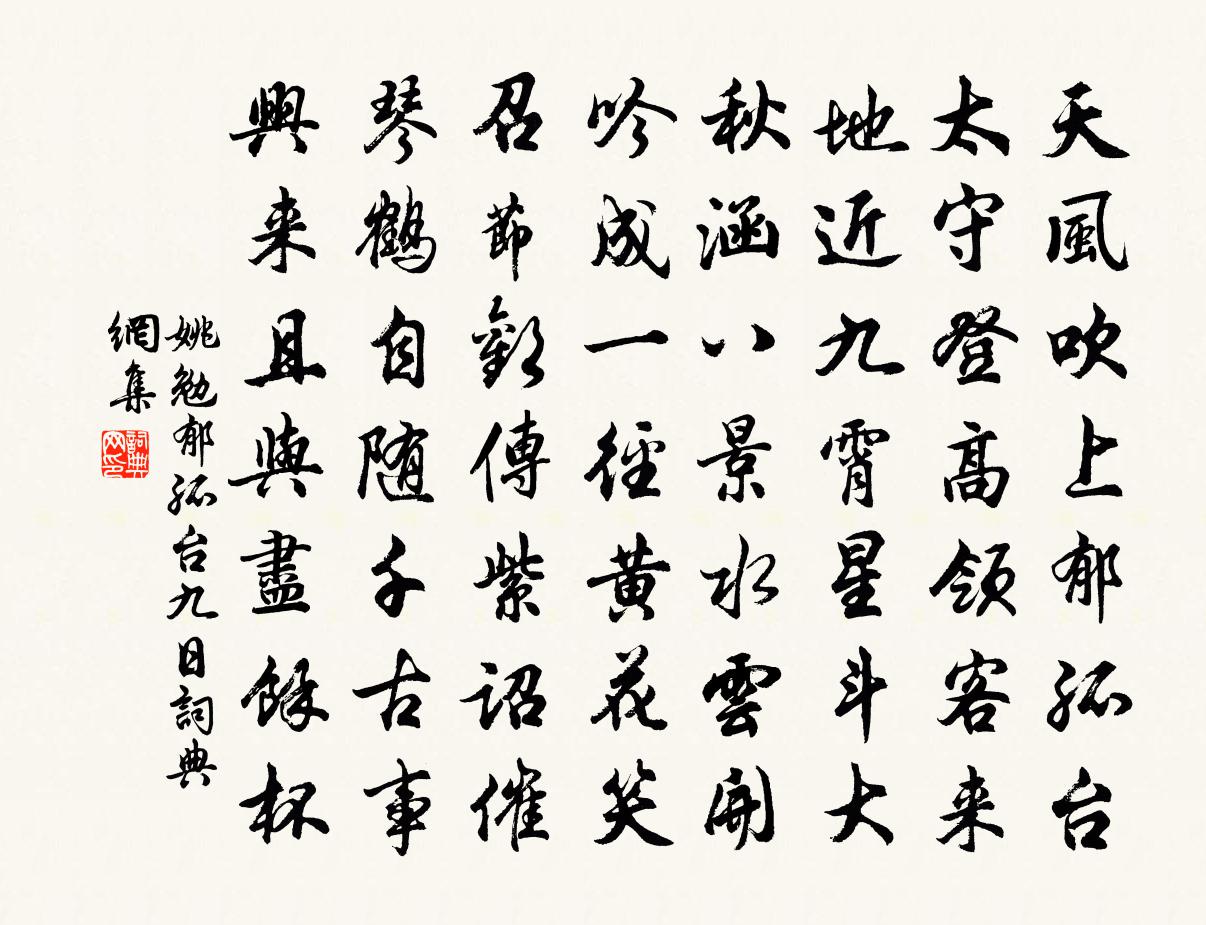 天風吹上郁孤台
太守登高領客来
地近九霄星斗大
秋涵八景水雲開
吟成一徑黄花笑
召節歡傳紫詔催
琴鶴自随千古事
興来且與盡餘杯
姚勉郁孤台九日詞典
網集
詞典
网印